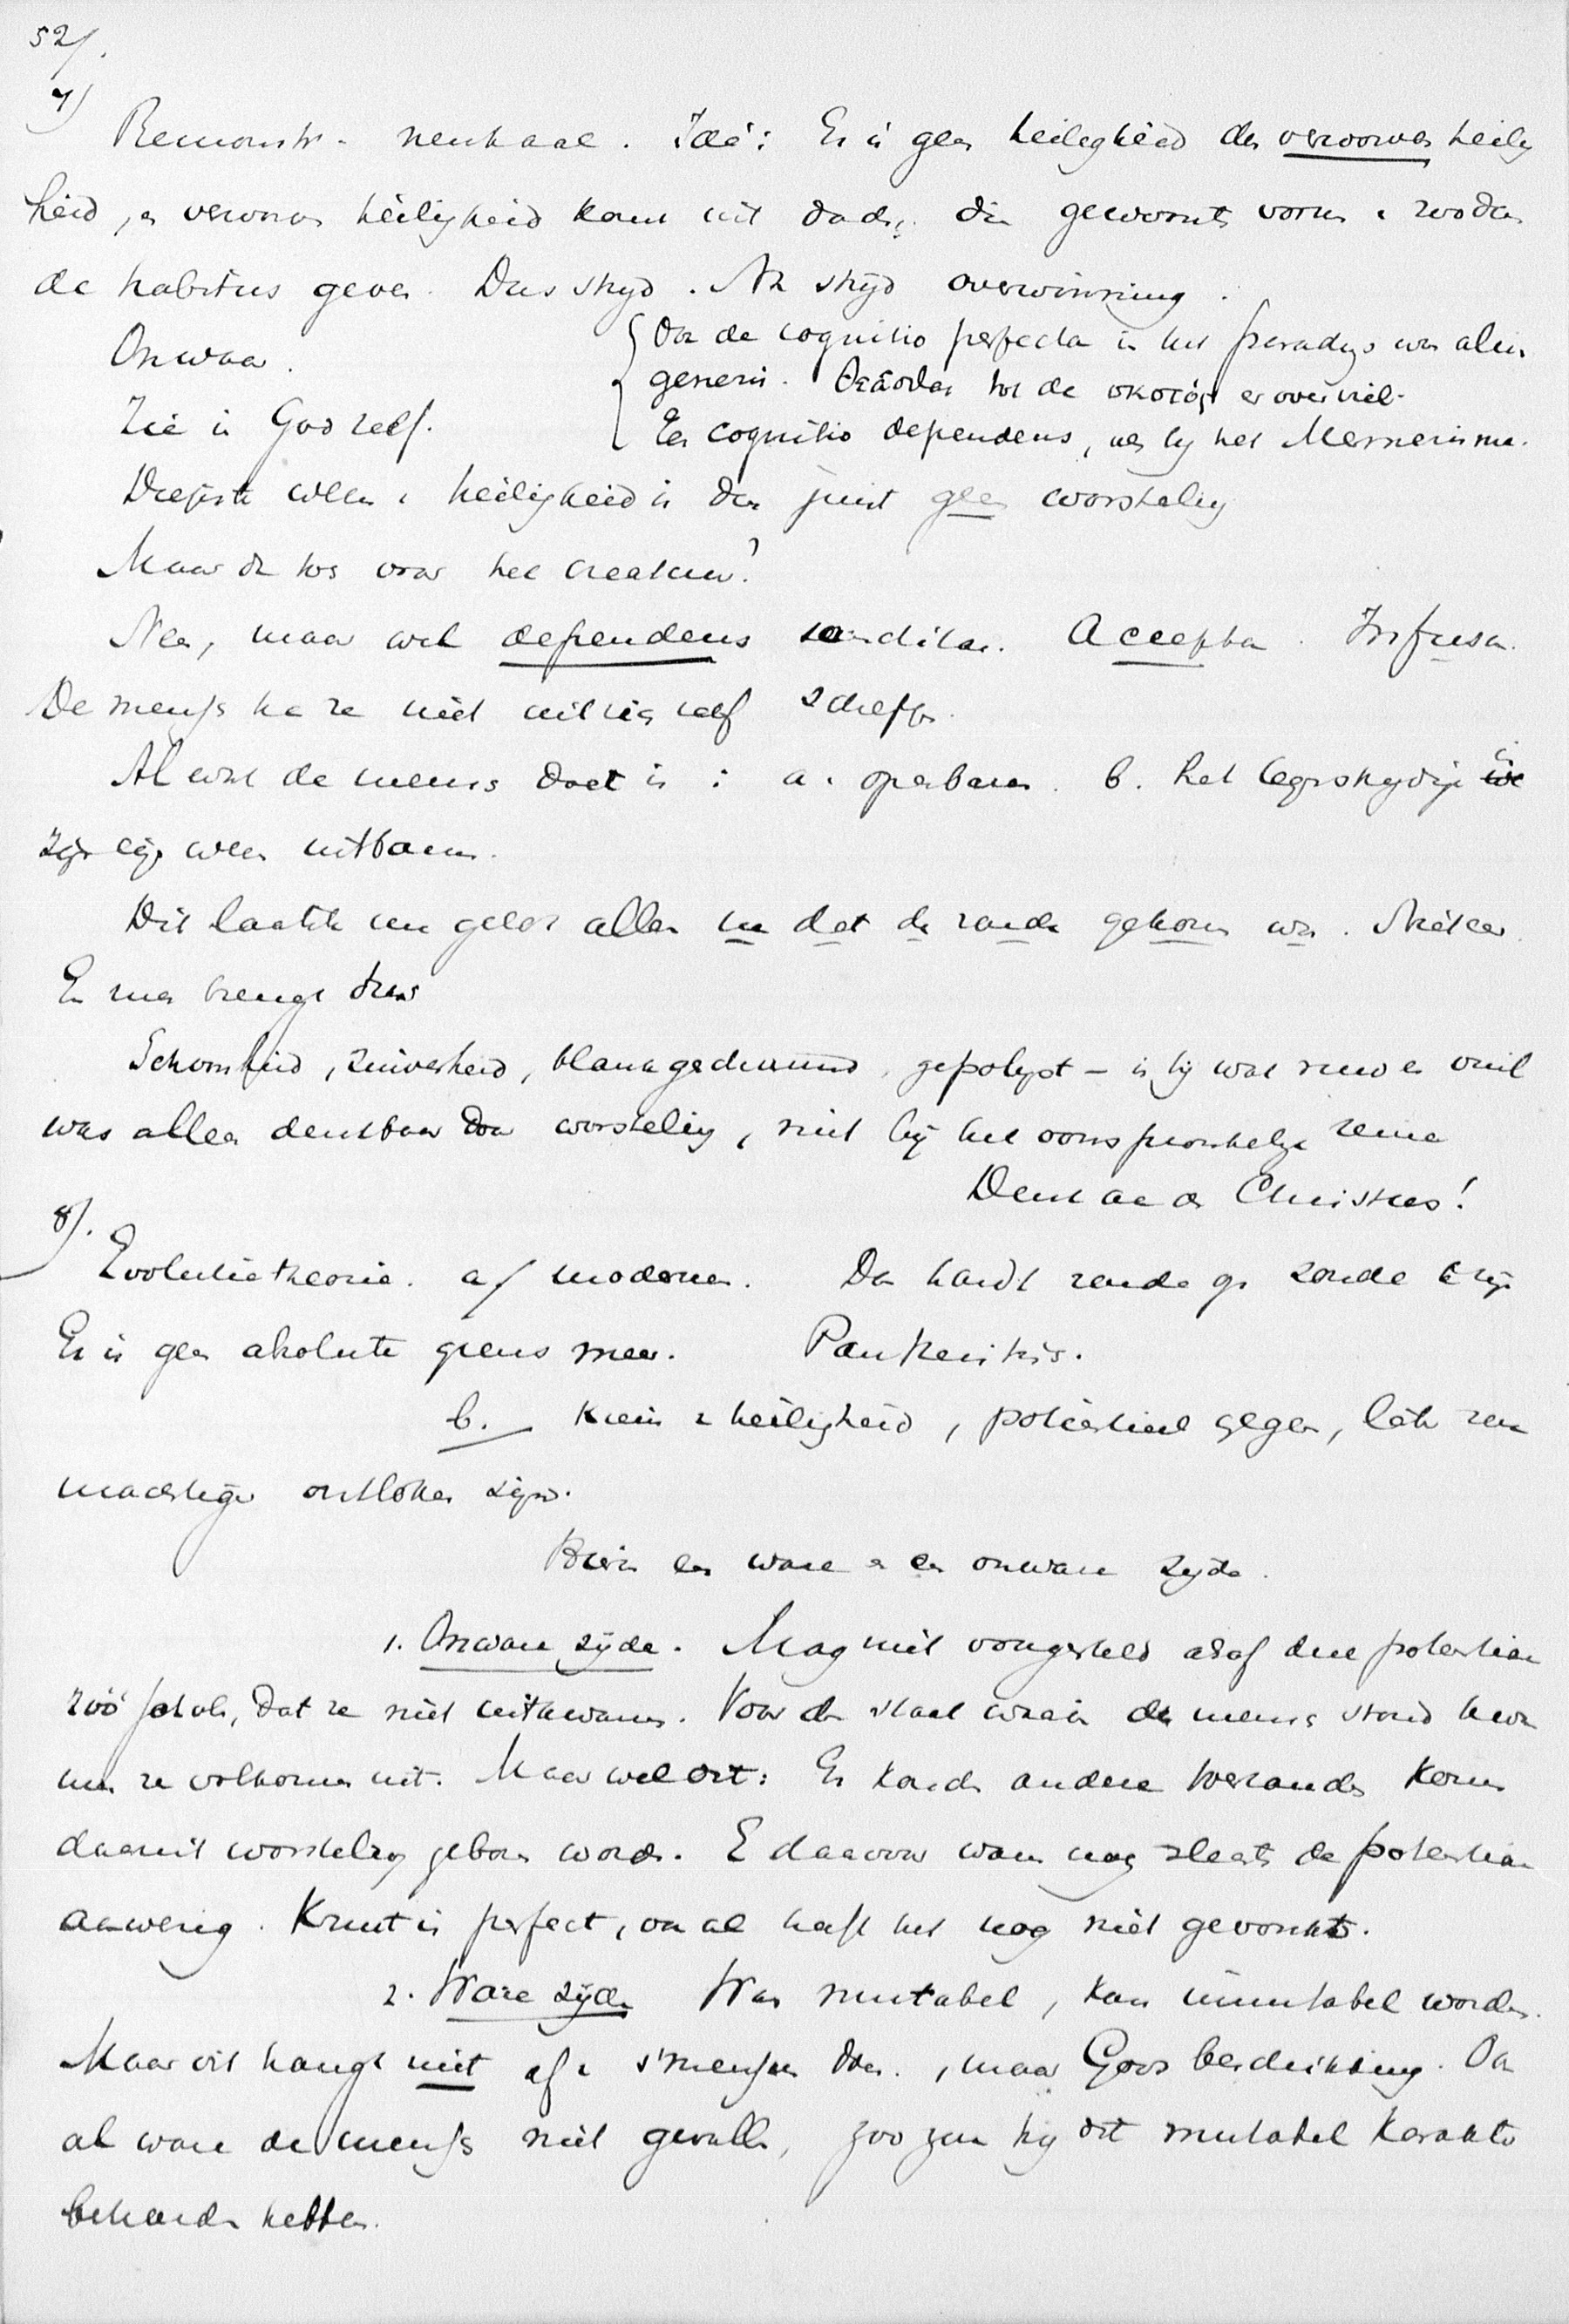 52/.
7)
Remonstr. neutraal. Idé: Er is geen heiligheid dan verworven heilig
heid, en verworven heiligheid komt uit daden die gewoonte vormen en zoodoen
de habitus geven. Dus strijd. Na strijd overwinning.
Onwaar.
{ Ook de cognitio perfecta in het paradys was alien
generis. Θεᾶσθαι tot de σκοτός er over viel.
Een cognitio dependens, als by het Mesmerisme.
Zie in God zelf.
Diepste wezen v heiligheid is dan juist geen worsteling
Maar dan toch voor het creatuur?
Neen, maar wel dependens conditae. Accepta. Infusa.
De mensch ka ze niet uit zich zelf scheppen.
Al wat de mensch doet is: a. openbaren. b. het tegenstrydige in
zijn eigen wezen uitbannen.
Dit laatste nu geldt alleen nu dat de zonde gekomen was. Niet eer.
En men brengt
Schoonheid, zuiverheid, blank geschuurd, gepolyst – is by wat ruw en vuil
was alleen denkbaar door worsteling, niet by het oorspronkelyk reine
Denk aan den Christus!
8).
Evolutietheorie. a/ moderne. Dan houdt zonde op zonde te zijn
Er is geen absolute grens meer. Pantheistisch.
b. Kiem v heiligheid, potentieel gegeven, later
machtiger ontloken zijn.
Hierin een ware en een onware zyde.
1. Onware zyde. Mag niet voorgesteld alsof deze potentiae
zoó school, dat ze niet uitkwamen. Voor den staat waarin de mensch stond kwa
men ze volkomen uit. Maar wel dit: Er konden andere toestanden komen
daaruit worsteling geboren worden. En daarvoor waren nog slechts de potentiae
aanwezig. Kruit is perfect, ook al heeft het nog niet gevonkt.
2. Ware zyde Was mutabel, kon immutabel worden.
Maar dit hangt niet af v 's menschen doen, maar Gods beschikking. Ook
al ware de mensch niet gevallen, zoo zou hij dit mutabel karakter
behouden hebben.